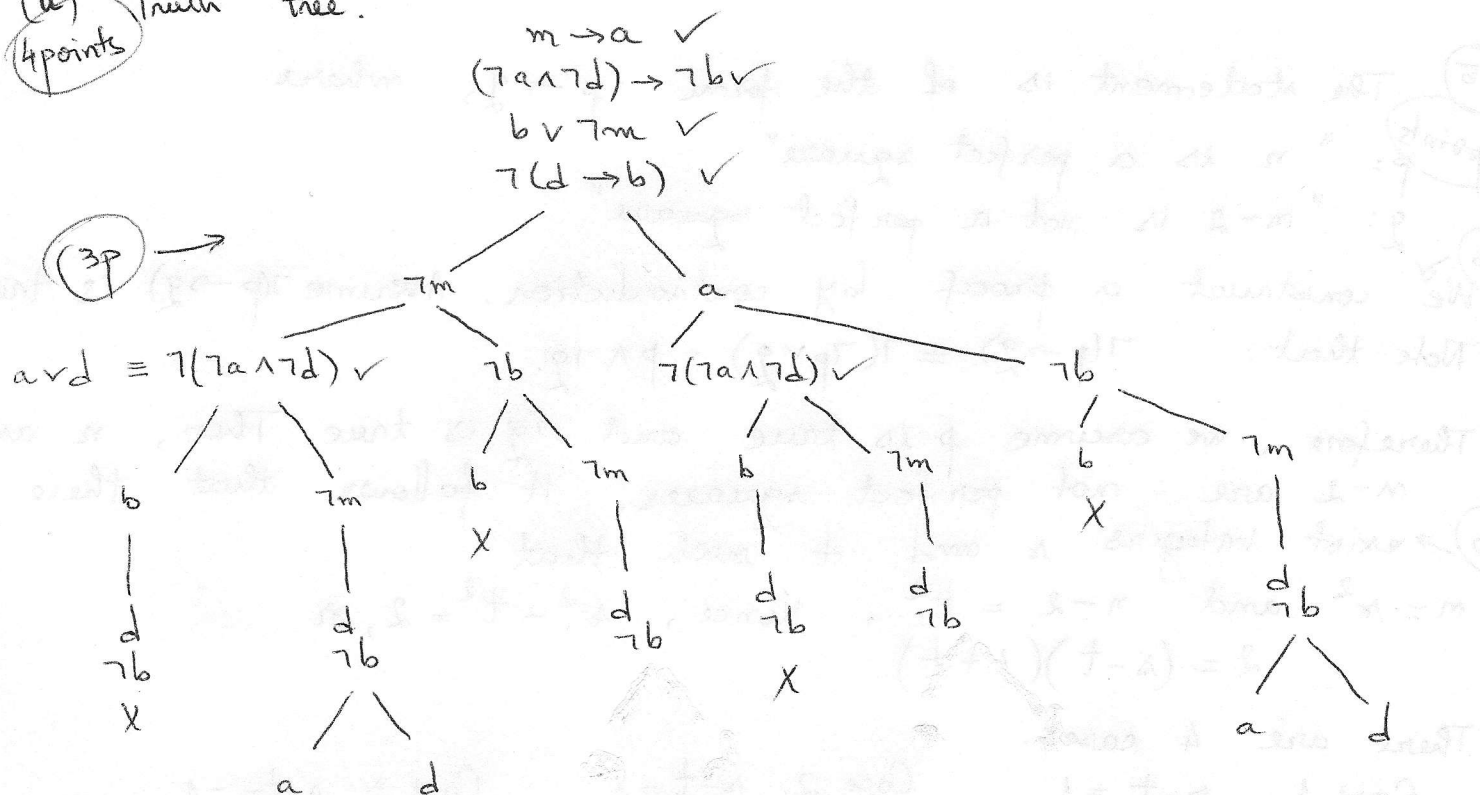 (a) Truth tree.
4points
m → a ✓
(¬a ∧ ¬d) → ¬b ✓
b ∨ ¬m ✓
¬(d → b) ✓
3p →
¬m a
a ∨ d ≡ ¬(¬a ∧ ¬d) ✓ ¬b ¬(¬a ∧ ¬d) ✓ ¬b
b ¬m b ¬m b ¬m b ¬m
X X
d d d d d d
¬b ¬b ¬b ¬b ¬b ¬b
X X
a d a d